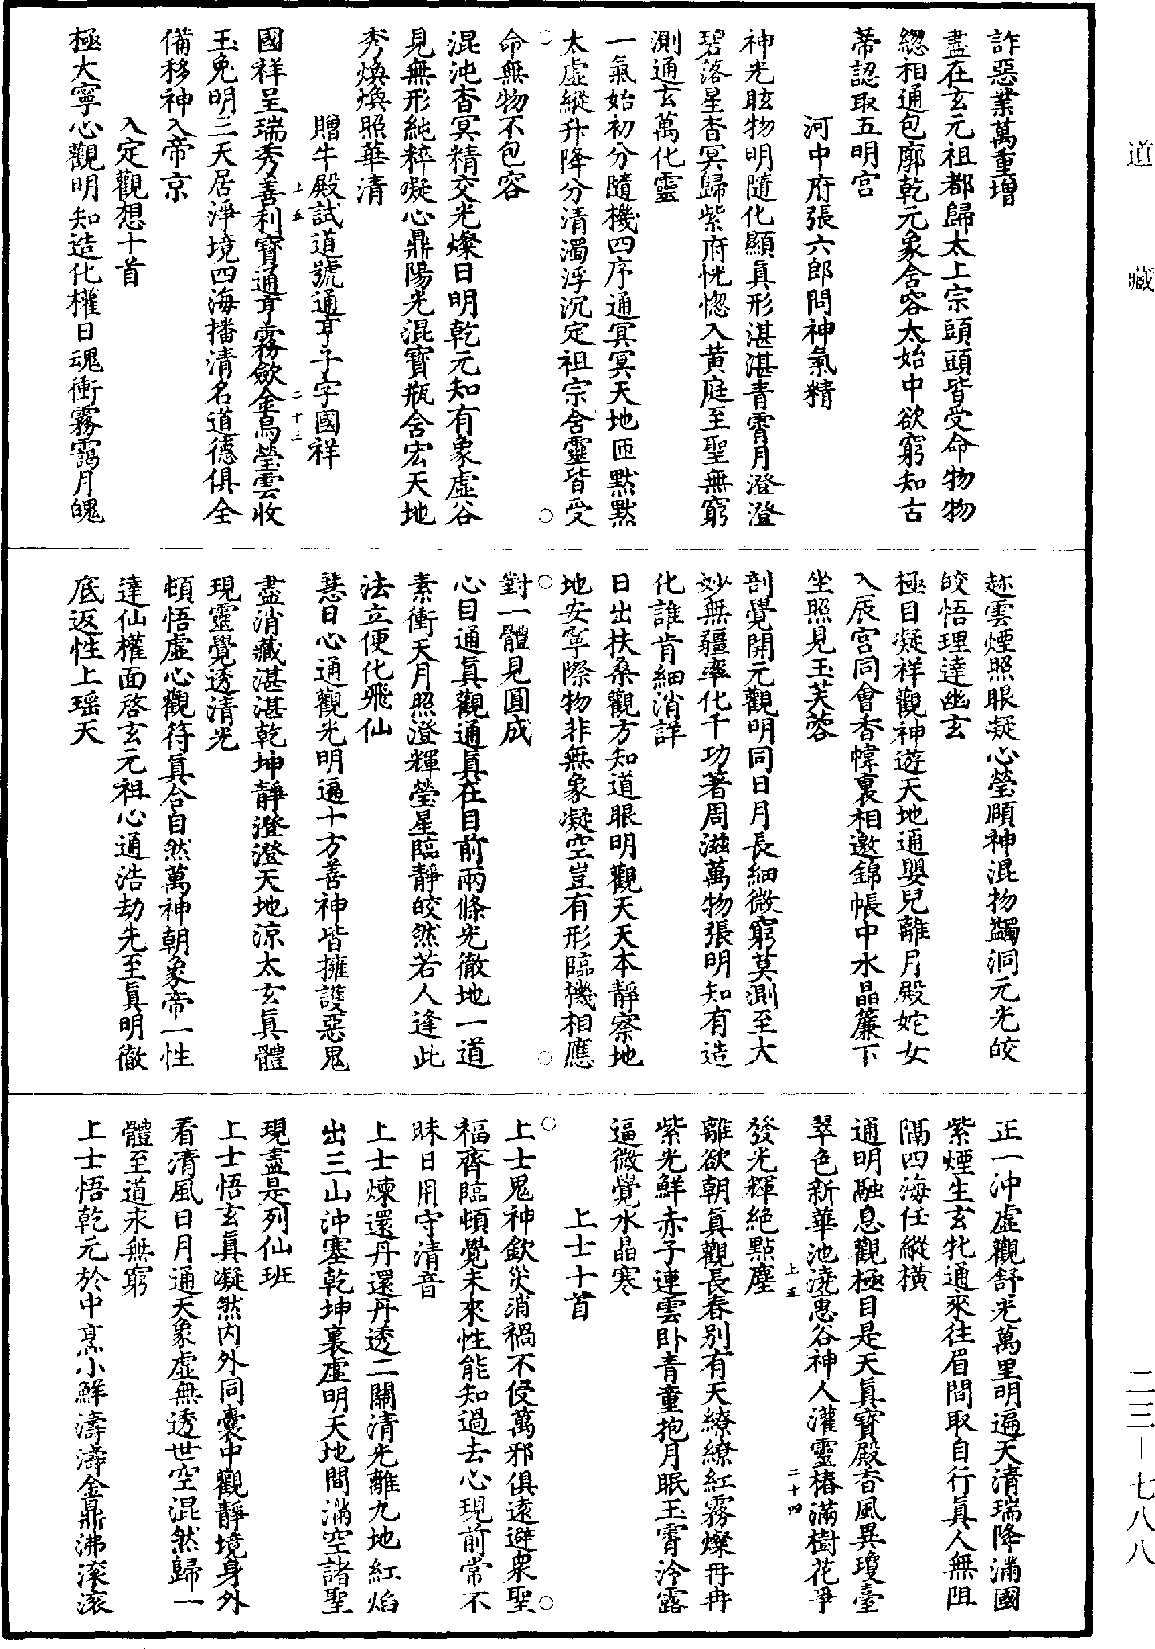 道藏
詐惡業萬重增
盡在玄元祖都歸太上宗頭頭皆受命物物
總相通包廓乾元象含容太始中欲窮知古
蒂認取五明宮
河中府張六郎問神氣精
神光眩物明隨化顯真形湛湛青霄月澄澄
碧落星杳冥歸紫府恍惚入黃庭至聖無窮
測通玄萬化靈
一氣始初分隨機四序通冥冥天地匝默默
太虛縱升降分清濁浮沉定祖宗含靈皆受
命無物不包容
混沌杳冥精交光燦日明乾元知有象虛谷
見無形純粹凝心鼎陽光混寶瓶含宏天地
秀煥煥照華清
贈牛殿試道號通亨子字國祥
國祥呈瑞秀善利寶通亨霧斂金烏瑩雲收
上五
二十三
玉兔明三天居淨境四海播清名道德俱全
備移神入帝京
入定觀想十首
極大寧心觀明知造化權日魂衝霧靄月魄
趂雲煙照眼凝心瑩頤神混物蠲洞元光皎
皎悟理達幽玄
極目凝祥觀神遊天地通嬰兒離月殿姹女
入辰宮同會香幃裏相邀錦帳中水晶簾下
坐照見玉芙蓉
剖覺開元觀明同日月長細微窮莫測至大
妙無疆率化千功著周滋萬物張明知有造
化誰肯細消詳
日出扶桑觀方知道眼明觀天天本靜察地
地安寧際物非無象凝空豈有形臨機相應
對一體見圓成
心目通真觀通真在目前兩條光徹地一道
素衝天月照澄輝瑩星臨靜皎然若人逢此
法立便化飛仙
慧日心通觀光明遍十方善神皆擁護惡鬼
盡消藏湛湛乾坤靜澄澄天地涼太玄真體
現靈覺透清光
頓悟虛心觀符真合自然萬神朝象帝一性
達仙權面啓玄元祖心通浩劫先至真明徹
底返性上瑶天
正一沖虛觀舒光萬里明遍天清瑞降滿國
紫煙生玄牝通來往眉間取自行真人無阻
隔四海任縱橫
通明融息觀極目是天真寶殿香風異瓊臺
翠色新華池澆惠谷神人灌靈椿滿樹花爭
上五
二十四
發光輝絕點塵
離欲朝真觀長春別有天繚繚紅霧燦冉冉
紫光鮮赤子連雲卧青童抱月眠玉霄泠露
逼微覺水晶寒
上士十首
上士鬼神欽災消禍不侵萬邪俱遠避衆聖
福齊臨頓覺未來性能知過去心現前常不
昧日用守清音
上士煉還丹還丹透二關清光離九地紅焰
出三山沖塞乾坤裏虛明天地間滿空諸聖
現盡是列仙班
上士悟玄真凝然內外同囊中觀靜境身外
看清風日月通天象虛無透世空混然歸一
體至道永無窮
上士悟乾元於中烹小鮮濤濤金鼎沸滾滾
二三—七八八